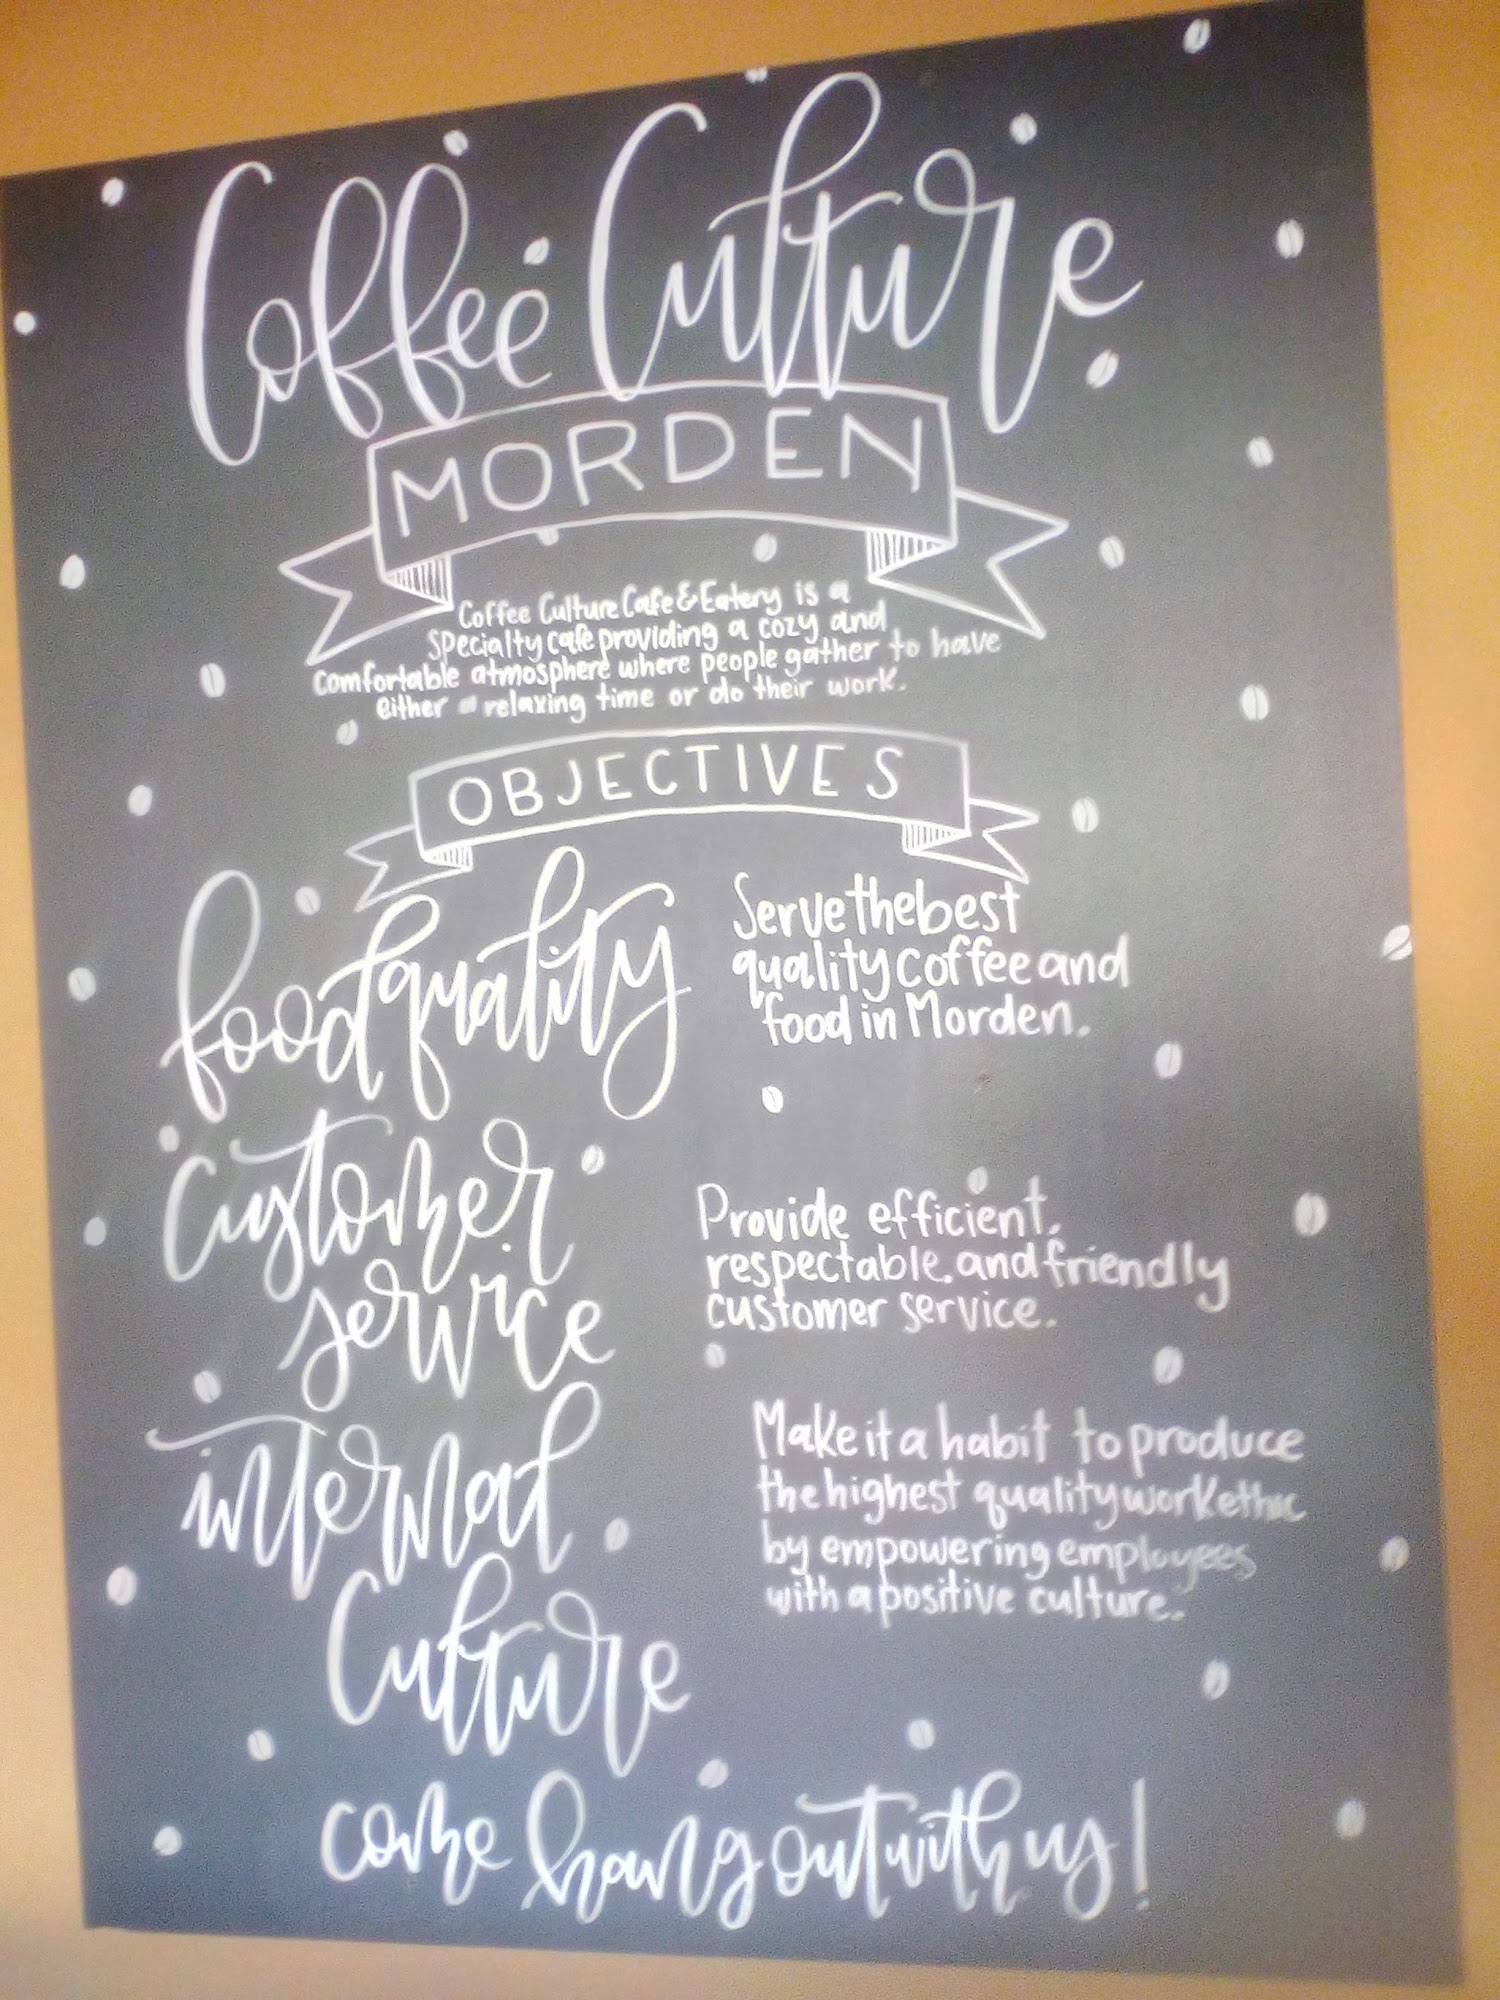 Coffee Culture
MORDEN
Coffee Culture Cafe & Eatery is a
specialty cafe providing a cozy and
comfortable atmosphere where people gather to have
either a relaxing time or do their work.
OBJECTIVES
food quality
Serve the best
quality coffee and
food in Morden.
customer
service
Provide efficient,
respectable, and friendly
customer service.
internal
Culture
Make it a habit to produce
the highest quality work ethic
by empowering employees
with a positive culture.
come hang out with us!